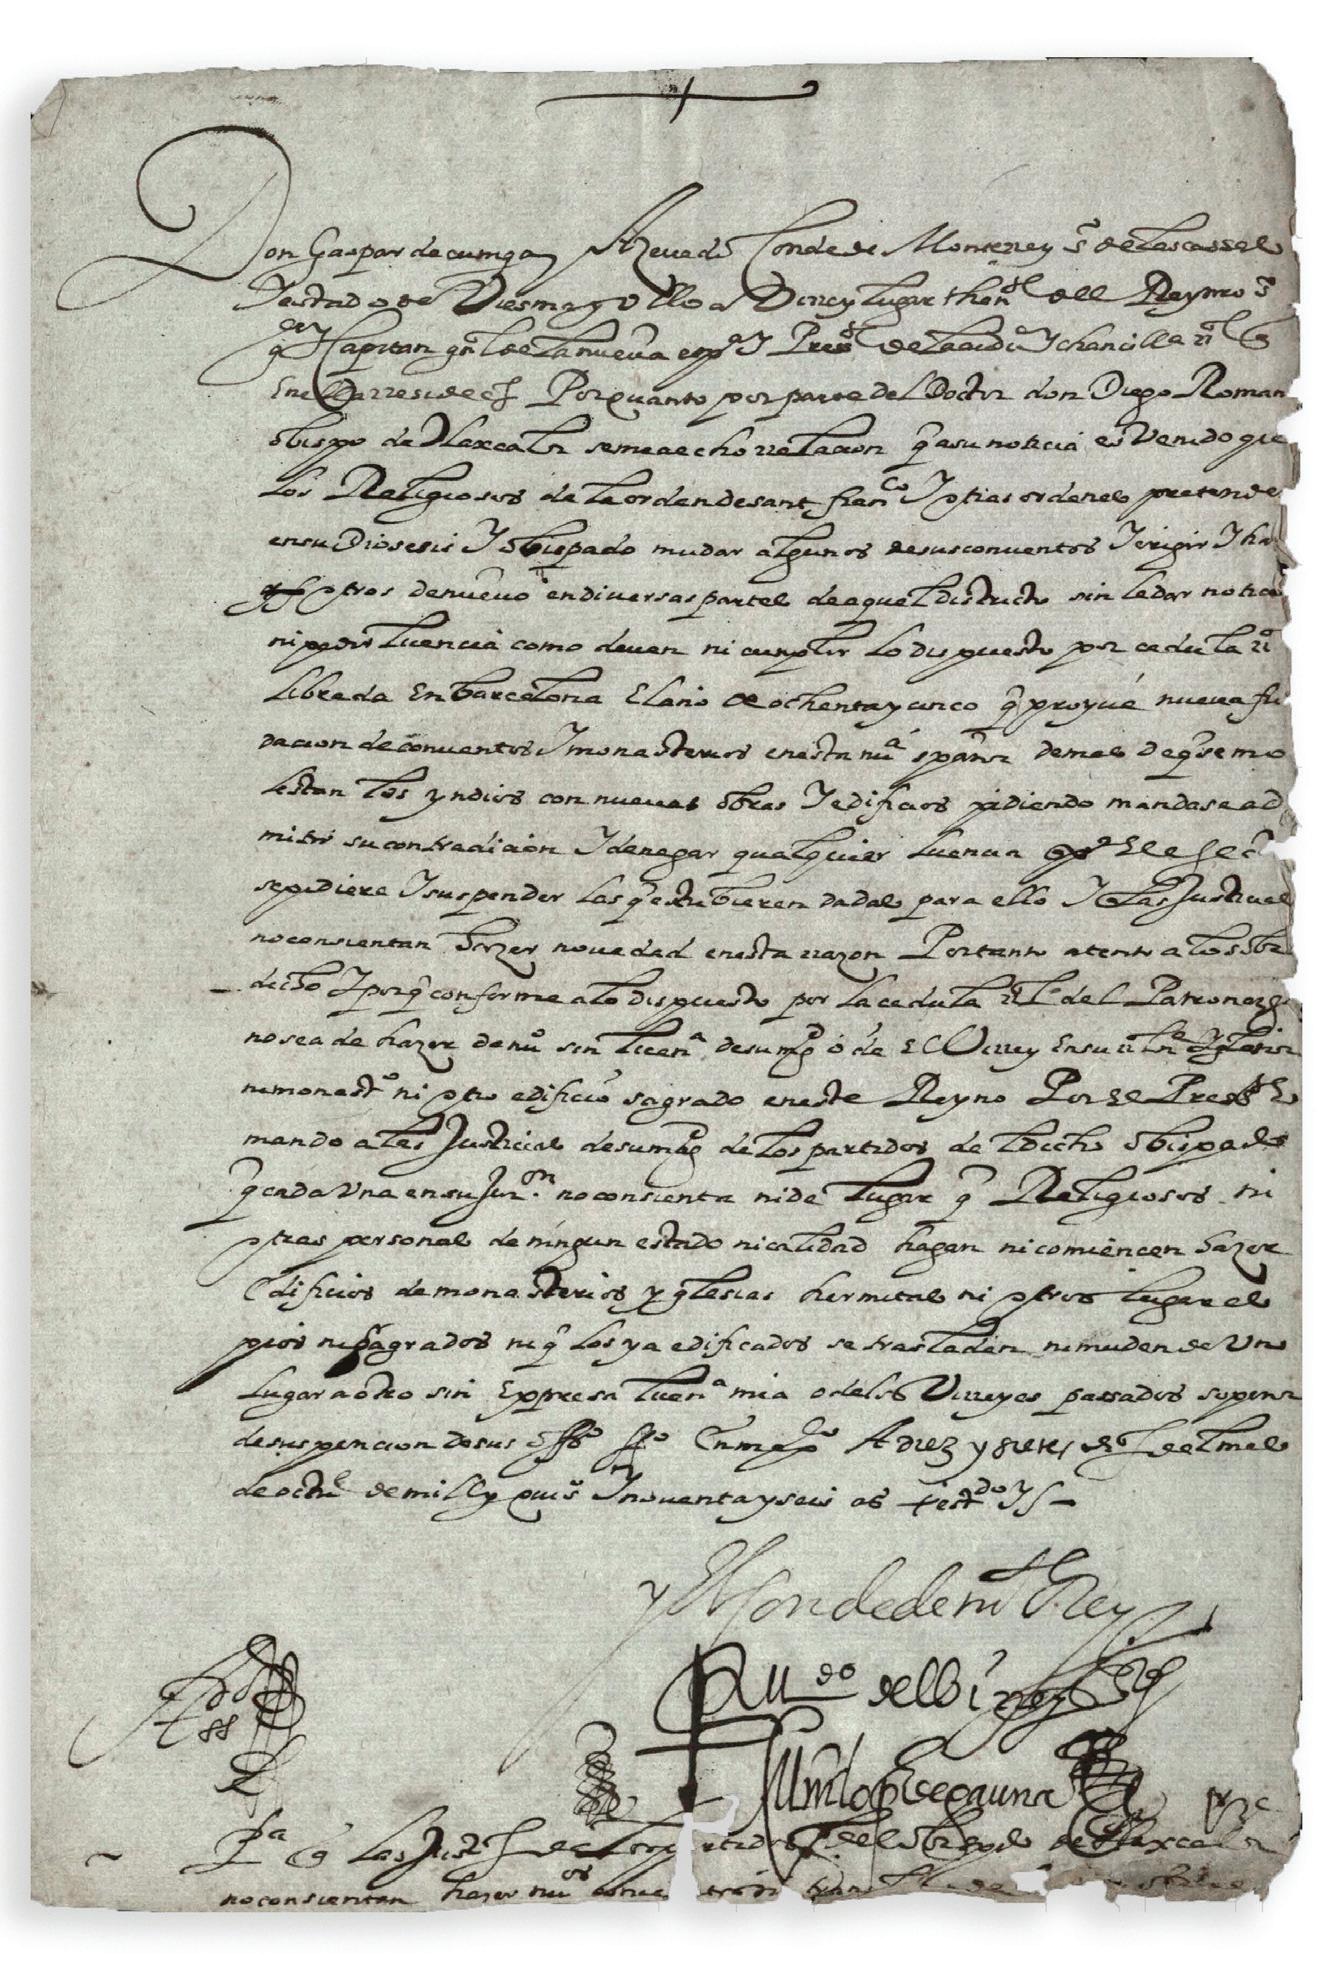 Don Gaspar de çuniga y Azevedo Conde de Monterrey s.r de las casas e
y estado de Viesma y Ulloa Virrey lugarthen.te del Rey nro s.r
y Capitan gnl de la nueva esp.a y Press.te de la audi.a y chancilleria rl q
en ella rreside etc Por quanto por parte del Doctor don Diego Roman
obispo de Tlaxcala se me a echo rrelacion q a su noticia es Venido que
los Religiosos de la orden de sant fran.co y otras ordenes pretende
en su Diosesis y obispado mudar algunos de sus conventos y erigir y ha
otros de nuevo en diversas partes de aquel districto sin le dar noticia
ni pedir licencia como deven ni cumplir lo dispuesto por cedula rl
librada en barcelona el año de ochenta y cinco q proyve nueva fu
dacion de conventos y monasterios en esta nu.a españa demas de q se mo
lestan los yndios con nuevas obras y edificios pidiendo mandase ad
mitir su contradicion y denegar qualquier licencia q
se pidiere y suspender las q estubieren dadas para ello y q las Justicias
no consientan hazer novedad en esta rrazon Por tanto atento a lo sobre
dicho y porq conforme a lo dispuesto por la cedula rl del Patronazgo
no se a de hazer de nu.o sin licen.a de su mg.d o de el Virrey en su rl n.e yglesia
ni monast.o ni otro edificio sagrado en este Reyno Por el press.te
mando a las Justicias de su mag.d de los partidos del dicho obispado
q cada Una en su Jur.on no consienta ni de lugar q Religiosos ni
otras personas de ningun estado ni calidad hagan ni comiencen hazer
edificios de monasterios yglesias hermitas ni otros lugares
pios ni sagrados ni q los ya edificados se trasladen ni muden de Un
lugar a otro sin expresa licen.a mia o de los Virreyes passados so pena
de suspencion de sus offi.os ff.o En mex.co A diez y siete dias del mes
de octu.e de mill y qui.s y noventa y seis as test.do ys
y El Conde de mt Rey
Por m.do del Virrey
P.a q las Just.s de los partidos del obispado de tlaxcala
no consientan hazer nu.os